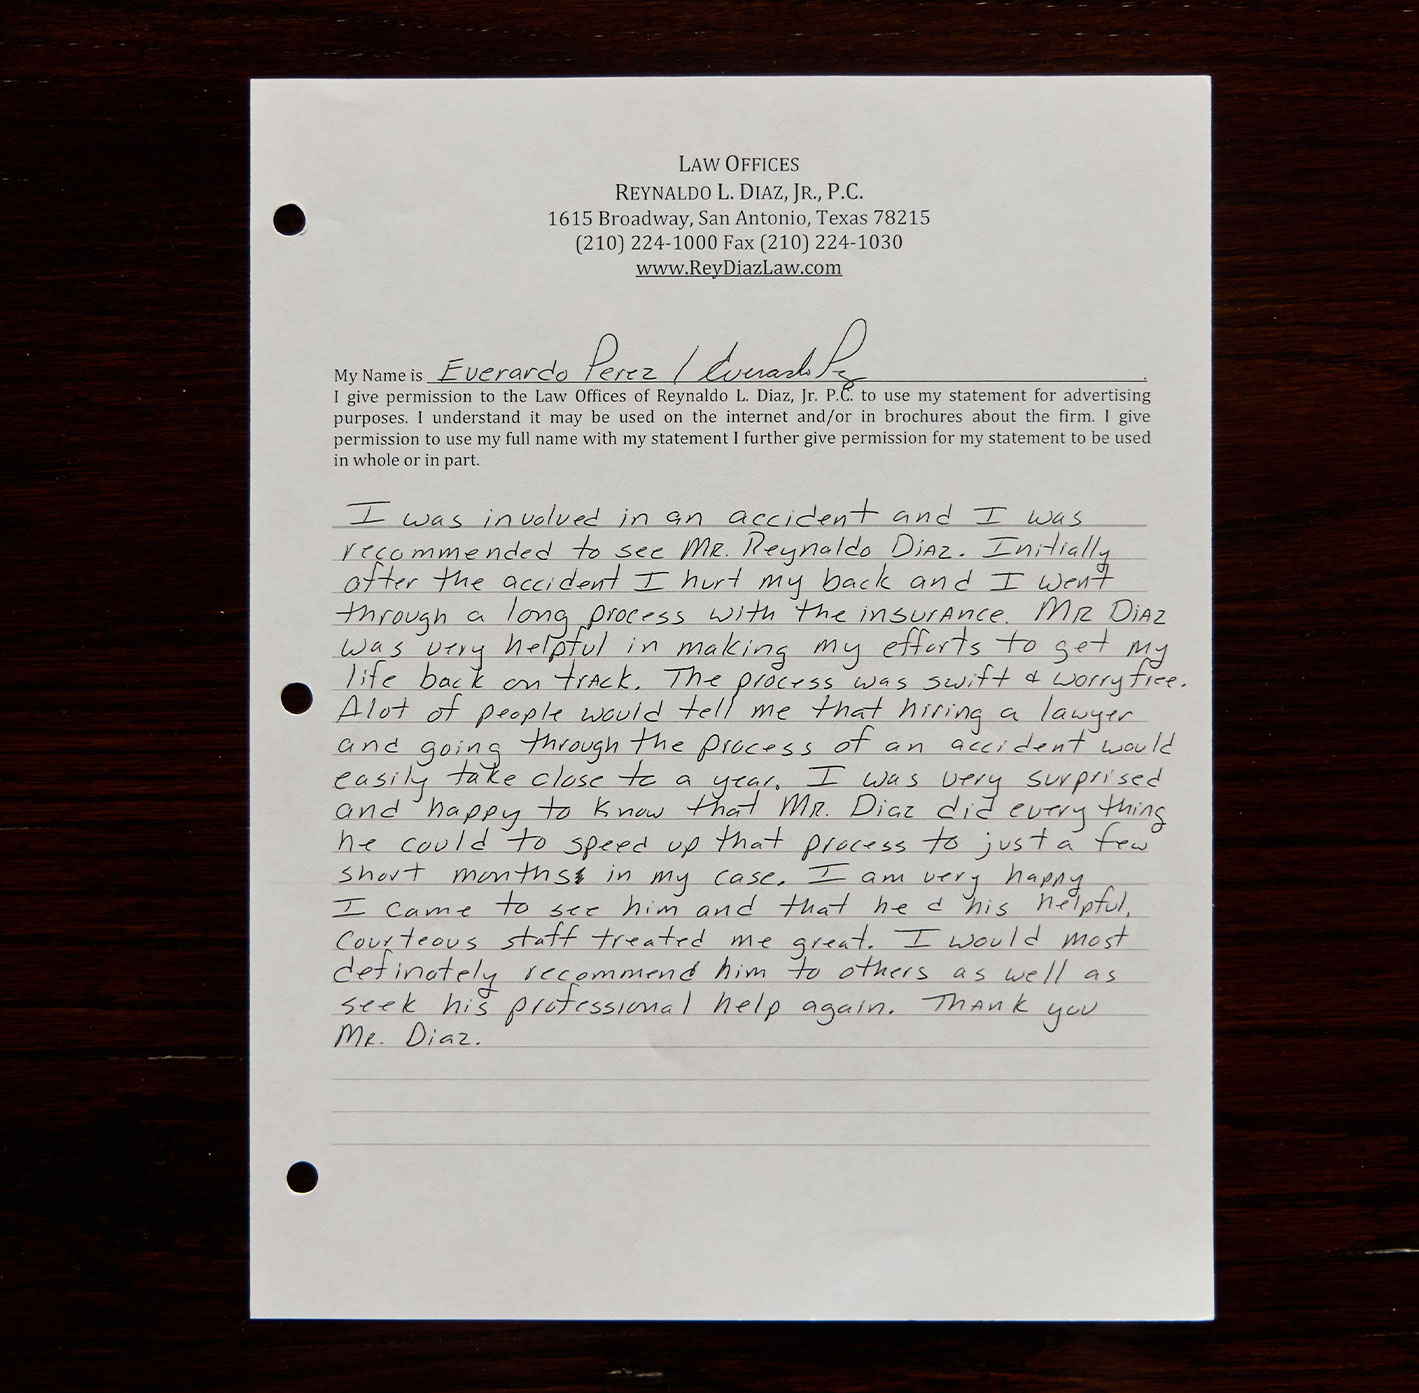 LAW OFFICES
REYNALDO L. DIAZ, JR., P.C.
1615 Broadway, San Antonio, Texas 78215
(210) 224-1000 Fax (210) 224-1030
www.ReyDiazLaw.com
My Name is Everardo Perez / Everardo Pz.
I give permission to the Law Offices of Reynaldo L. Diaz, Jr. P.C. to use my statement for advertising
purposes. I understand it may be used on the internet and/or in brochures about the firm. I give
permission to use my full name with my statement I further give permission for my statement to be used
in whole or in part.
I was involved in an accident and I was
recommended to see MR. Reynaldo DiAz. Initially
after the accident I hurt my back and I went
through a long process with the insurAnce. MR DiAz
was very helpful in making my efforts to get my
life back on trAck. The process was swift & worryfree.
Alot of people would tell me that hiring a lawyer
and going through the process of an accident would
easily take close to a year. I was very surprised
and happy to know that MR. Diaz did every thing
he could to speed up that process to just a few
short months in my case. I am very happy
I came to see him and that he & his helpful,
courteous staff treated me great. I would most
definately recommend him to others as well as
seek his professional help again. Thank you
MR. Diaz.